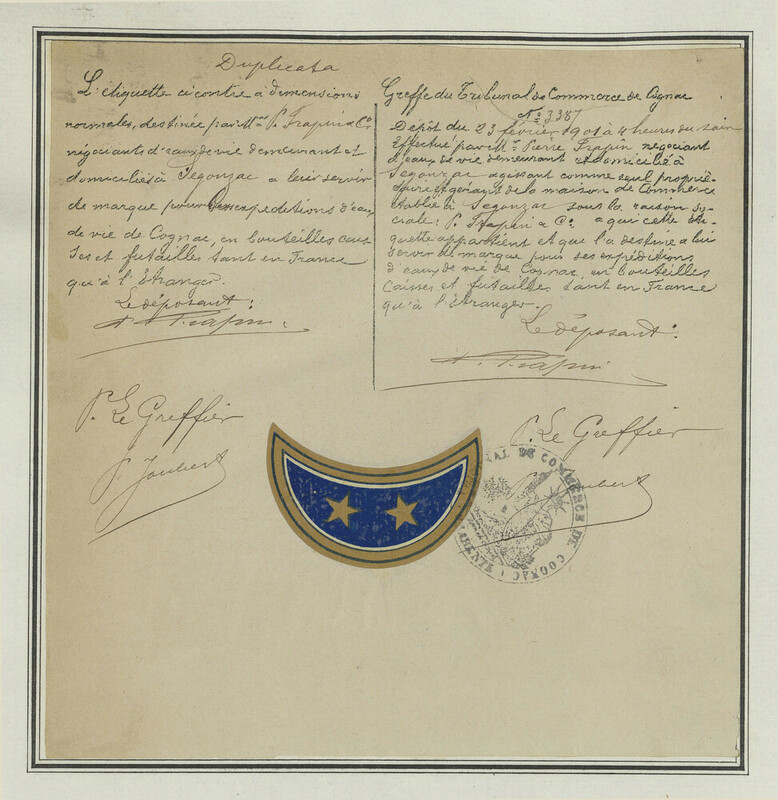 Duplicata
L'étiquette ci contre à dimensions
normales, destinée par MM. P. Frapin & Co
négociants d'eaux de vie demeurant et
domiciliés à Segonzac a leur servir
de marque pour leurs expeditions d'eaux
de vie de Cognac, en bouteilles cais
ses et futailles tant en France
qu'à l'étranger.
Le déposant:
P. Frapin
P. Le Greffier
P. Joubert
Greffe du Tribunal de Commerce de Cognac
No 3387
Dépôt du 23 février 1901 à 4 heures du soir
Effectué par Mr Pierre Frapin négociant
d'eaux de vie demeurant et domicilié à
Segonzac agissant comme seul proprié-
taire et gérant de la maison de Commerce
établie à Segonzac sous la raison So-
ciale: P. Frapin & Co. a qui cette éti-
quette appartient et que l'a destine a lui
servir de marque pour ses expéditions
d'eaux de vie de Cognac, en bouteilles
Caisses et futailles tant en France
qu'à l'étranger.
Le déposant:
P. Frapin
P. Le Greffier
Joubert
DE COMMERCE DE COGNAC